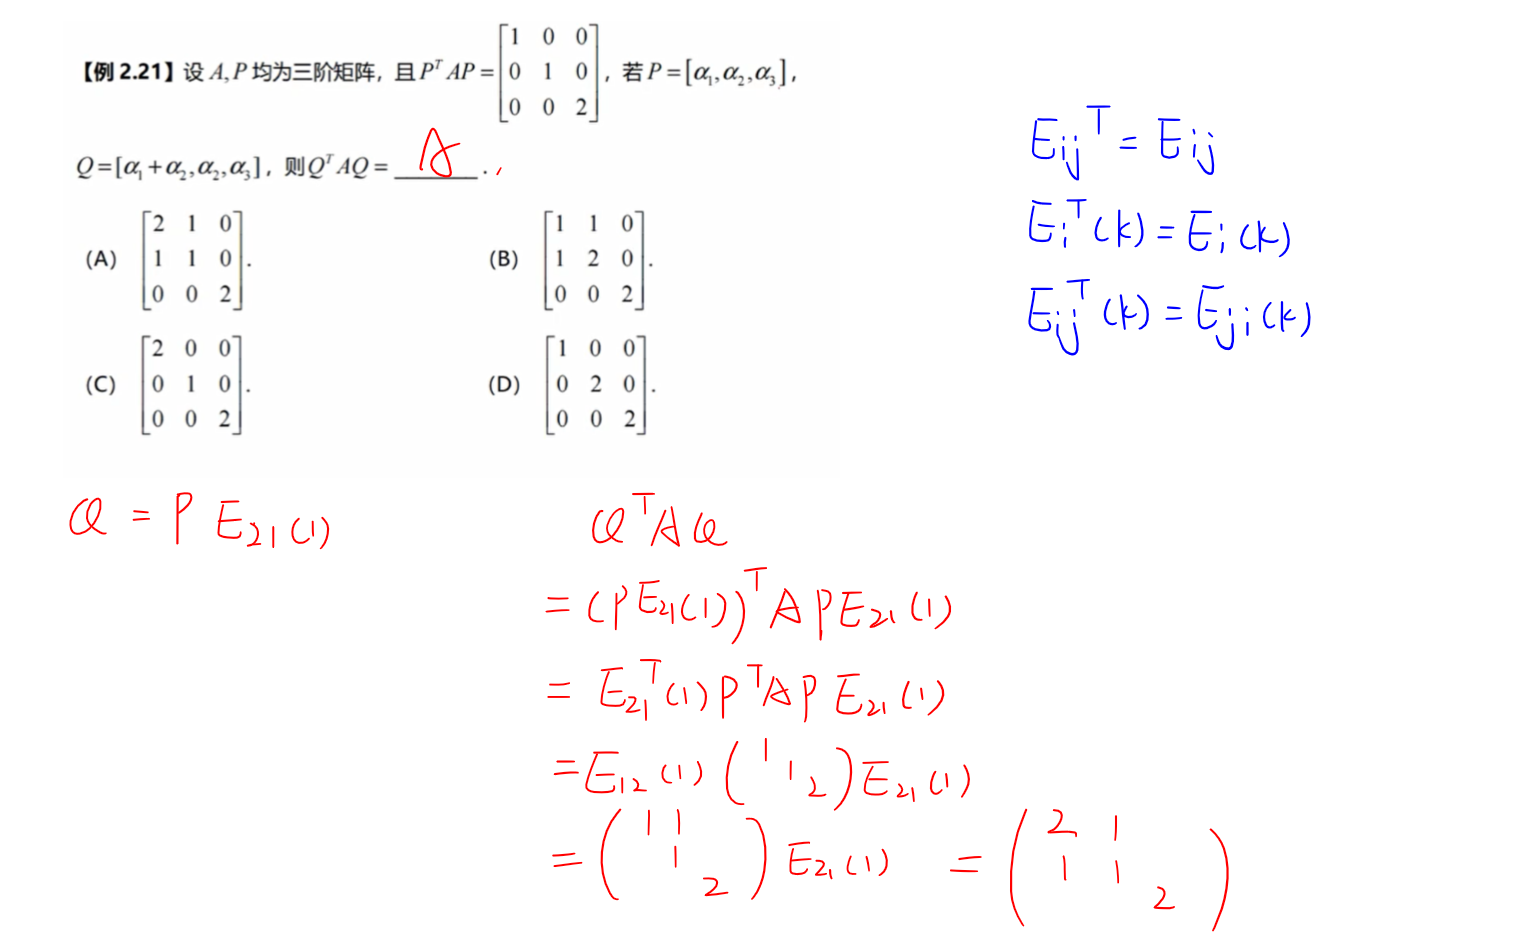 【例 2.21】设 A, P 均为三阶矩阵，且 PᵀAP = [1 0 0; 0 1 0; 0 0 2]，若 P = [α₁, α₂, α₃]，
Q = [α₁ + α₂, α₂, α₃]，则 QᵀAQ = A .
(A) [2 1 0; 1 1 0; 0 0 2].
(B) [1 1 0; 1 2 0; 0 0 2].
(C) [2 0 0; 0 1 0; 0 0 2].
(D) [1 0 0; 0 2 0; 0 0 2].
Eijᵀ = Eij
Eiᵀ(k) = Ei(k)
Eijᵀ(k) = Eji(k)
Q = P E₂₁(1)
QᵀAQ
= (P E₂₁(1))ᵀ A P E₂₁(1)
= E₂₁ᵀ(1) PᵀAP E₂₁(1)
= E₁₂(1) (1 1 2) E₂₁(1)
= (1 1; 1; 2) E₂₁(1) = (2 1; 1 1; 2)